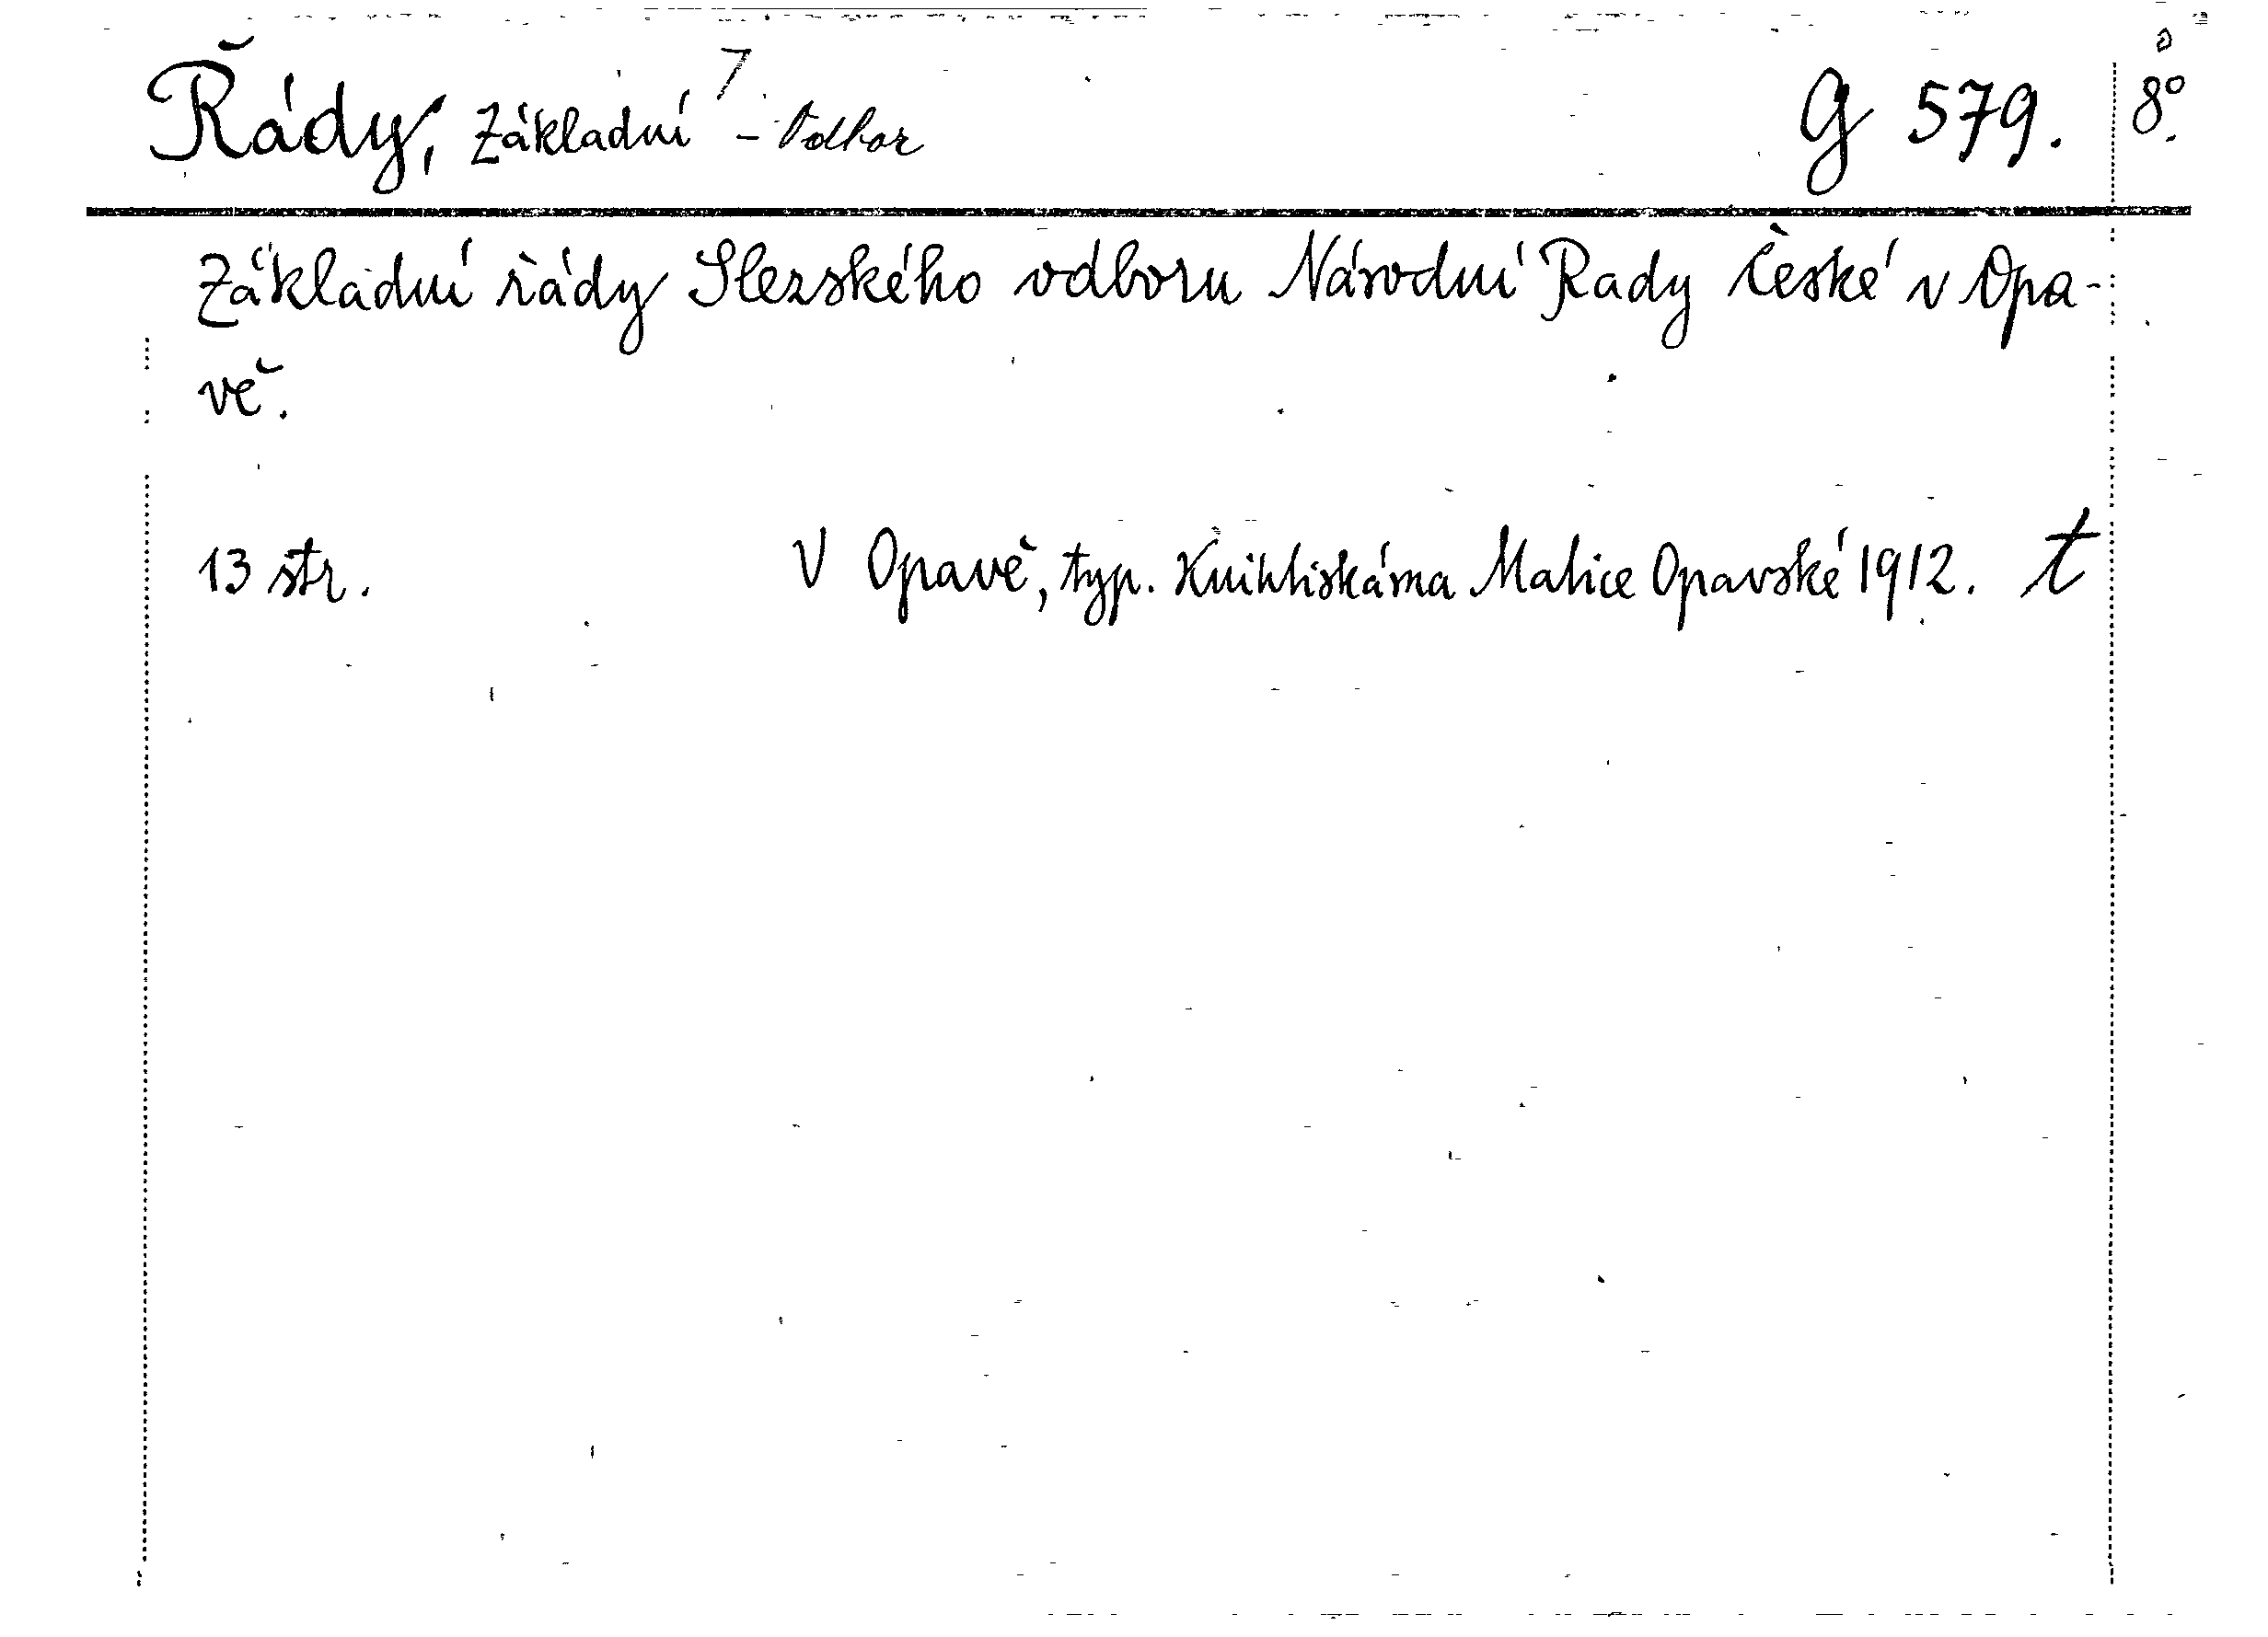 Řády, základní 7 - Odbor G 579. 8°.
Základní řády Slezského odboru Národní Rady České v Opa-
vě.
13 str. V Opavě, typ. Knihtiskárna Matice Opavské 1912. t